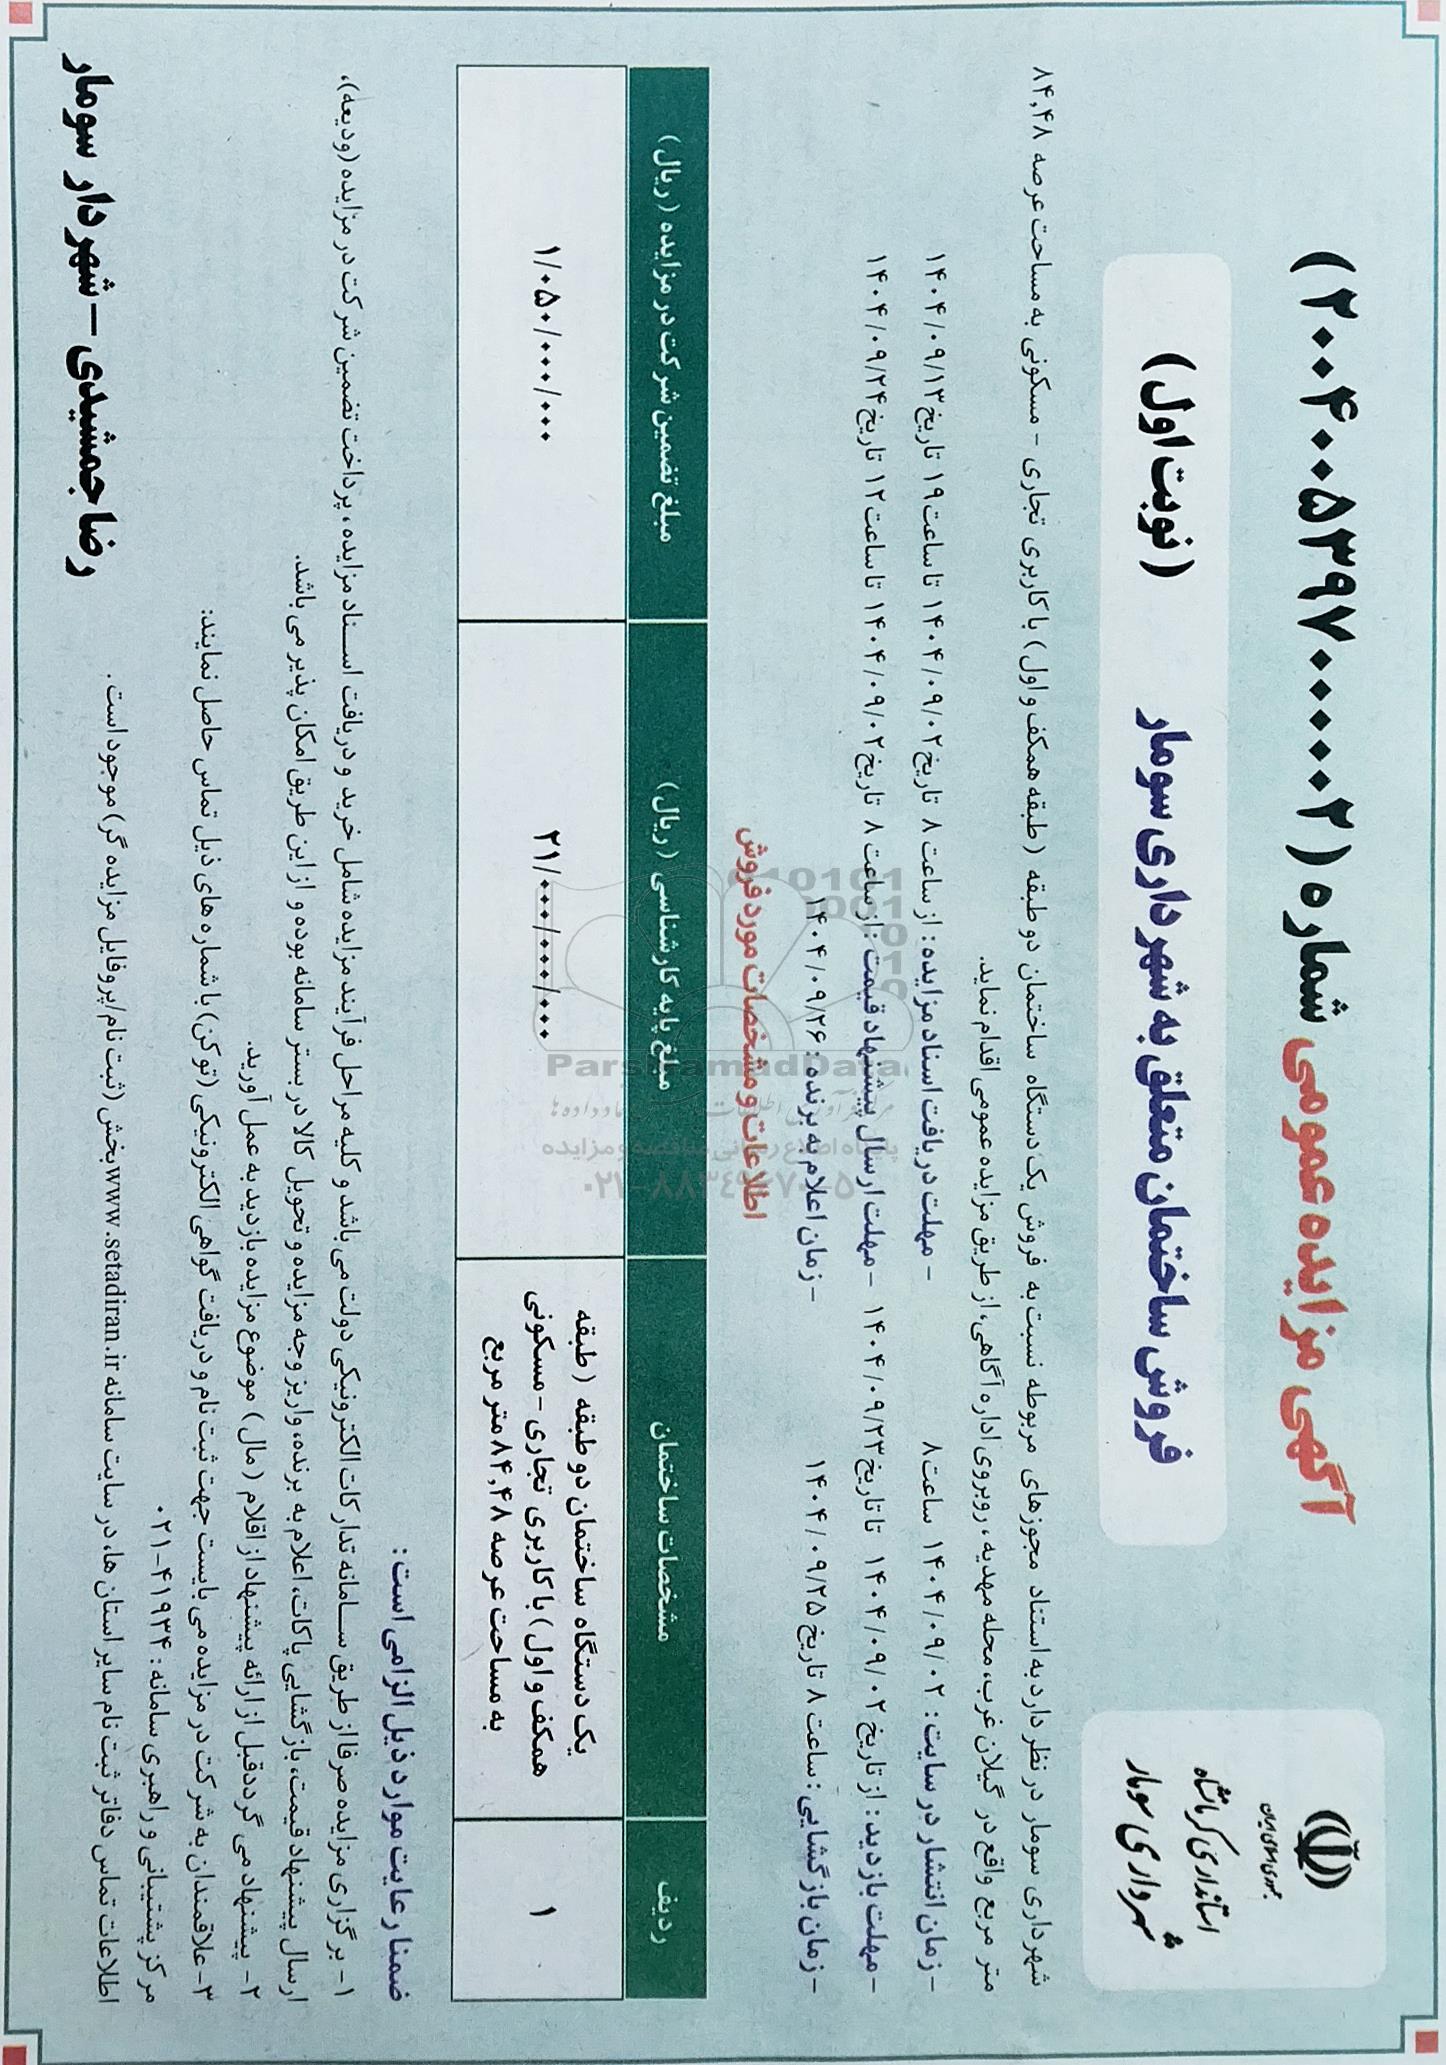 جمهوری اسلامی ایران
استانداری کرمانشاه
شهرداری سومار
آگهی مزایده عمومی شماره (۲۰۰۴۰۰۵۳۹۷۰۰۰۰۰۲)
فروش ساختمان متعلق به شهرداری سومار (نوبت اول)
شهرداری سومار در نظر دارد به استناد مجوزهای مربوطه نسبت به فروش یک دستگاه ساختمان دو طبقه (طبقه همکف و اول) با کاربری تجاری - مسکونی به مساحت عرصه ۸۴,۴۸
متر مربع واقع در گیلان غرب، محله مهدیه، روبروی اداره آگاهی، از طریق مزایده عمومی اقدام نماید.
- زمان انتشار در سایت: ۱۴۰۴/۰۹/۰۲ ساعت ۸ - مهلت دریافت اسناد مزایده: از ساعت ۸ تاریخ ۱۴۰۴/۰۹/۰۲ تا ساعت ۱۹ تاریخ ۱۴۰۴/۰۹/۱۳
- مهلت بازدید: از تاریخ ۱۴۰۴/۰۹/۰۲ تا تاریخ ۱۴۰۴/۰۹/۲۳ - مهلت ارسال پیشنهاد قیمت: از ساعت ۸ تاریخ ۱۴۰۴/۰۹/۰۲ تا ساعت ۱۲ تاریخ ۱۴۰۴/۰۹/۲۴
- زمان بازگشایی: ساعت ۸ تاریخ ۱۴۰۴/۰۹/۲۵ - زمان اعلام به برنده: ۱۴۰۴/۰۹/۲۶
اطلاعات و مشخصات مورد فروش
ردیف مشخصات ساختمان مبلغ پایه کارشناسی (ریال) مبلغ تضمین شرکت در مزایده (ریال)
۱ یک دستگاه ساختمان دو طبقه (طبقه
همکف و اول) با کاربری تجاری - مسکونی
به مساحت عرصه ۸۴,۴۸ متر مربع
۲۱/۰۰۰/۰۰۰/۰۰۰ ۱/۰۵۰/۰۰۰/۰۰۰
ضمنا رعایت موارد ذیل الزامی است:
۱- برگزاری مزایده صرفا از طریق سامانه تدارکات الکترونیکی دولت می باشد و کلیه مراحل فرآیند مزایده شامل خرید و دریافت اسناد مزایده، پرداخت تضمین شرکت در مزایده (ودیعه)،
ارسال پیشنهاد قیمت، بازگشایی پاکات، اعلام به برنده، واریز وجه مزایده و تحویل کالا در بستر سامانه بوده و از این طریق امکان پذیر می باشد.
۲- پیشنهاد می گردد قبل از ارائه پیشنهاد از اقلام (مال) موضوع مزایده بازدید به عمل آورید.
۳- علاقمندان به شرکت در مزایده می بایست جهت ثبت نام و دریافت گواهی الکترونیکی (توکن) با شماره های ذیل تماس حاصل نمایند:
مرکز پشتیبانی و راهبری سامانه: ۴۱۹۳۴-۰۲۱
اطلاعات تماس دفاتر ثبت نام سایر استان ها، در سایت سامانه www.setadiran.ir بخش (ثبت نام/پروفایل مزایده گر) موجود است.
رضا جمشیدی – شهردار سومار
ParsNamadData
پایگاه اطلاع رسانی مناقصه و مزایده
۰۲۱-۸۸۳۴۹۶۷۰-۵